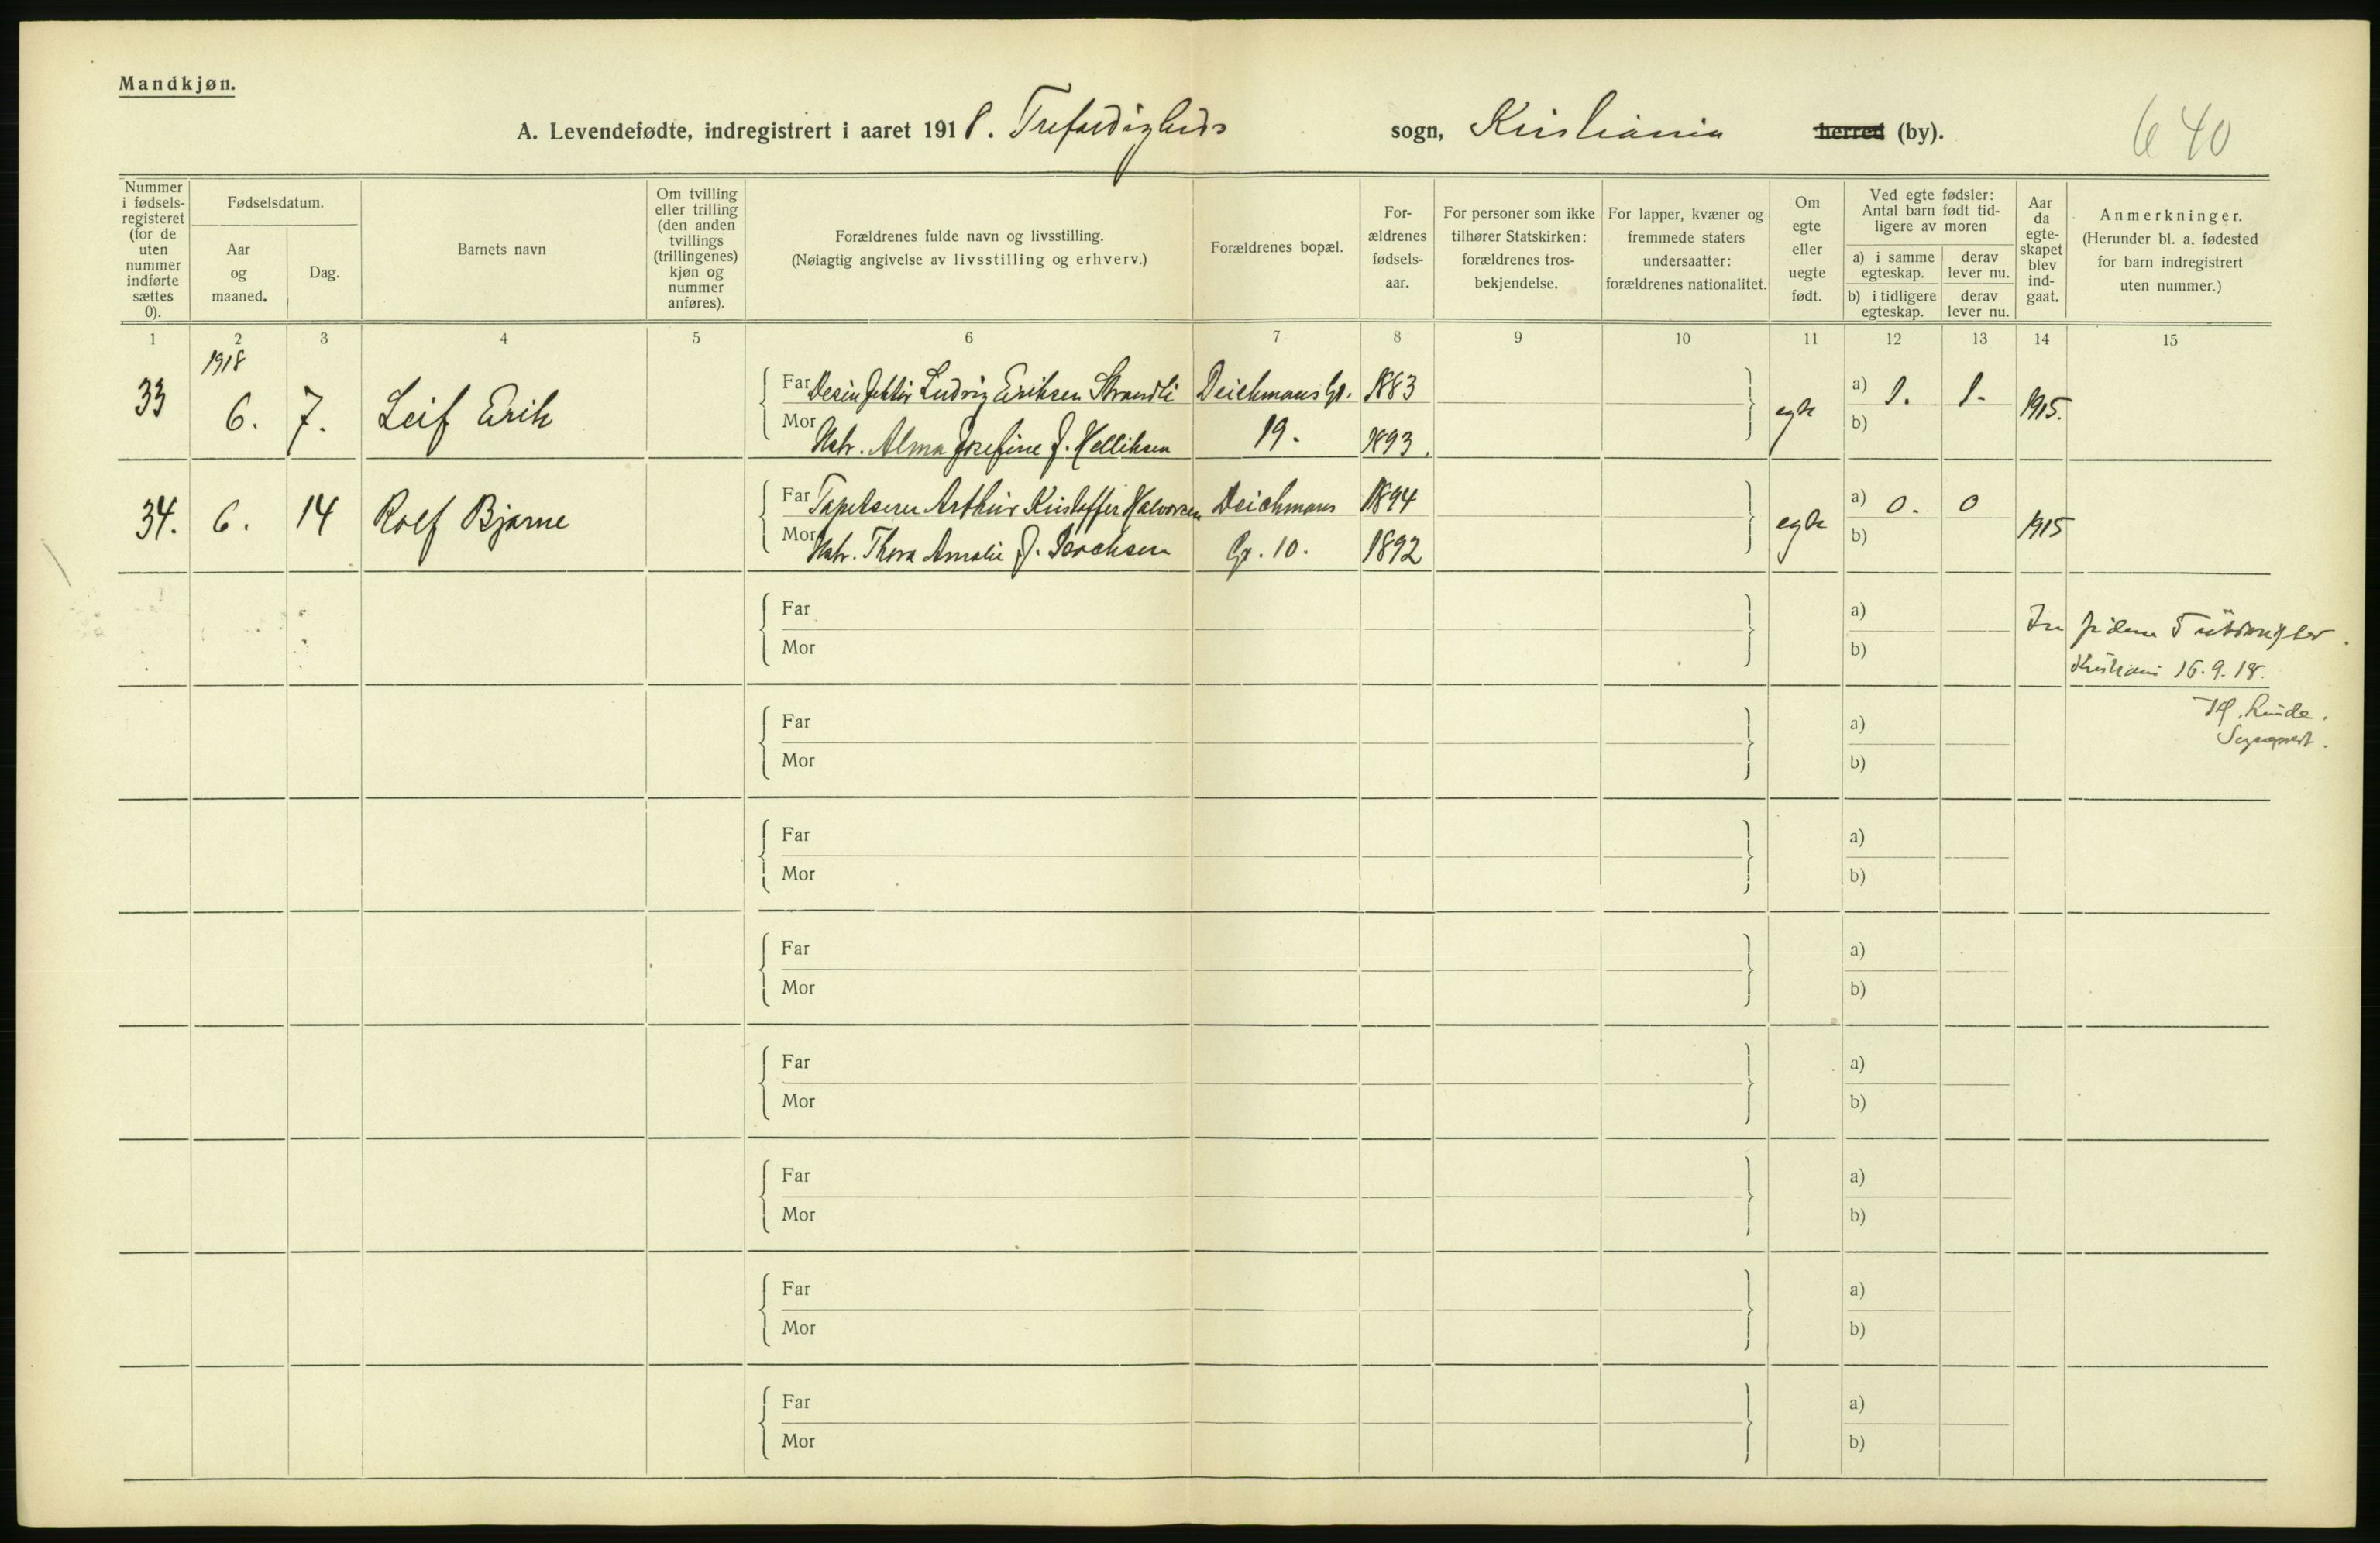 Mandkjøn.
A. Levendefødte, indregistrert i aaret 1918. Trefoldigheds sogn, Kristiania herred (by).
640
Nummer i fødsels-registeret (for de uten nummer indførte sættes 0).
Fødselsdatum.
Aar og maaned.
Dag.
Barnets navn
Om tvilling eller trilling (den anden tvillings (trillingenes) kjøn og nummer anføres).
Forældrenes fulde navn og livsstilling.
(Nøiagtig angivelse av livsstilling og erhverv.)
Forældrenes bopæl.
For-ældrenes fødsels-aar.
For personer som ikke tilhører Statskirken: forældrenes tros-bekjendelse.
For lapper, kvæner og fremmede staters undersaatter: forældrenes nationalitet.
Om egte eller uegte født.
Ved egte fødsler: Antal barn født tid-ligere av moren
a) i samme egteskap.
derav lever nu.
b) i tidligere egteskap.
derav lever nu.
Aar da egte-skapet blev ind-gaat.
Anmerkninger.
(Herunder bl. a. fødested for barn indregistrert uten nummer.)
1 2 3 4 5 6 7 8 9 10 11 12 13 14 15
1918
33 6. 7. Leif Erik Far Desinfektör Ludvig Eriksen Strandli Deichmans Gt. 1883 egte a) 1. 1. 1915.
Mor Hstr. Alma Josefine f. Helliksen 19. 1893. b)
34. 6. 14 Rolf Bjarne Far Tapetserer Arthur Kristoffer Halvorsen Deichmans 1894 egte a) 0. 0 1915
Mor Hstr. Thora Amalie f. Isachsen Gt. 10. 1892 b)
Far a)
Mor b)
Kristiania 16.9.18.
Far a)
Mor b)
Sogneprest.
Far a)
Mor b)
Far a)
Mor b)
Far a)
Mor b)
Far a)
Mor b)
Far a)
Mor b)
Far a)
Mor b)